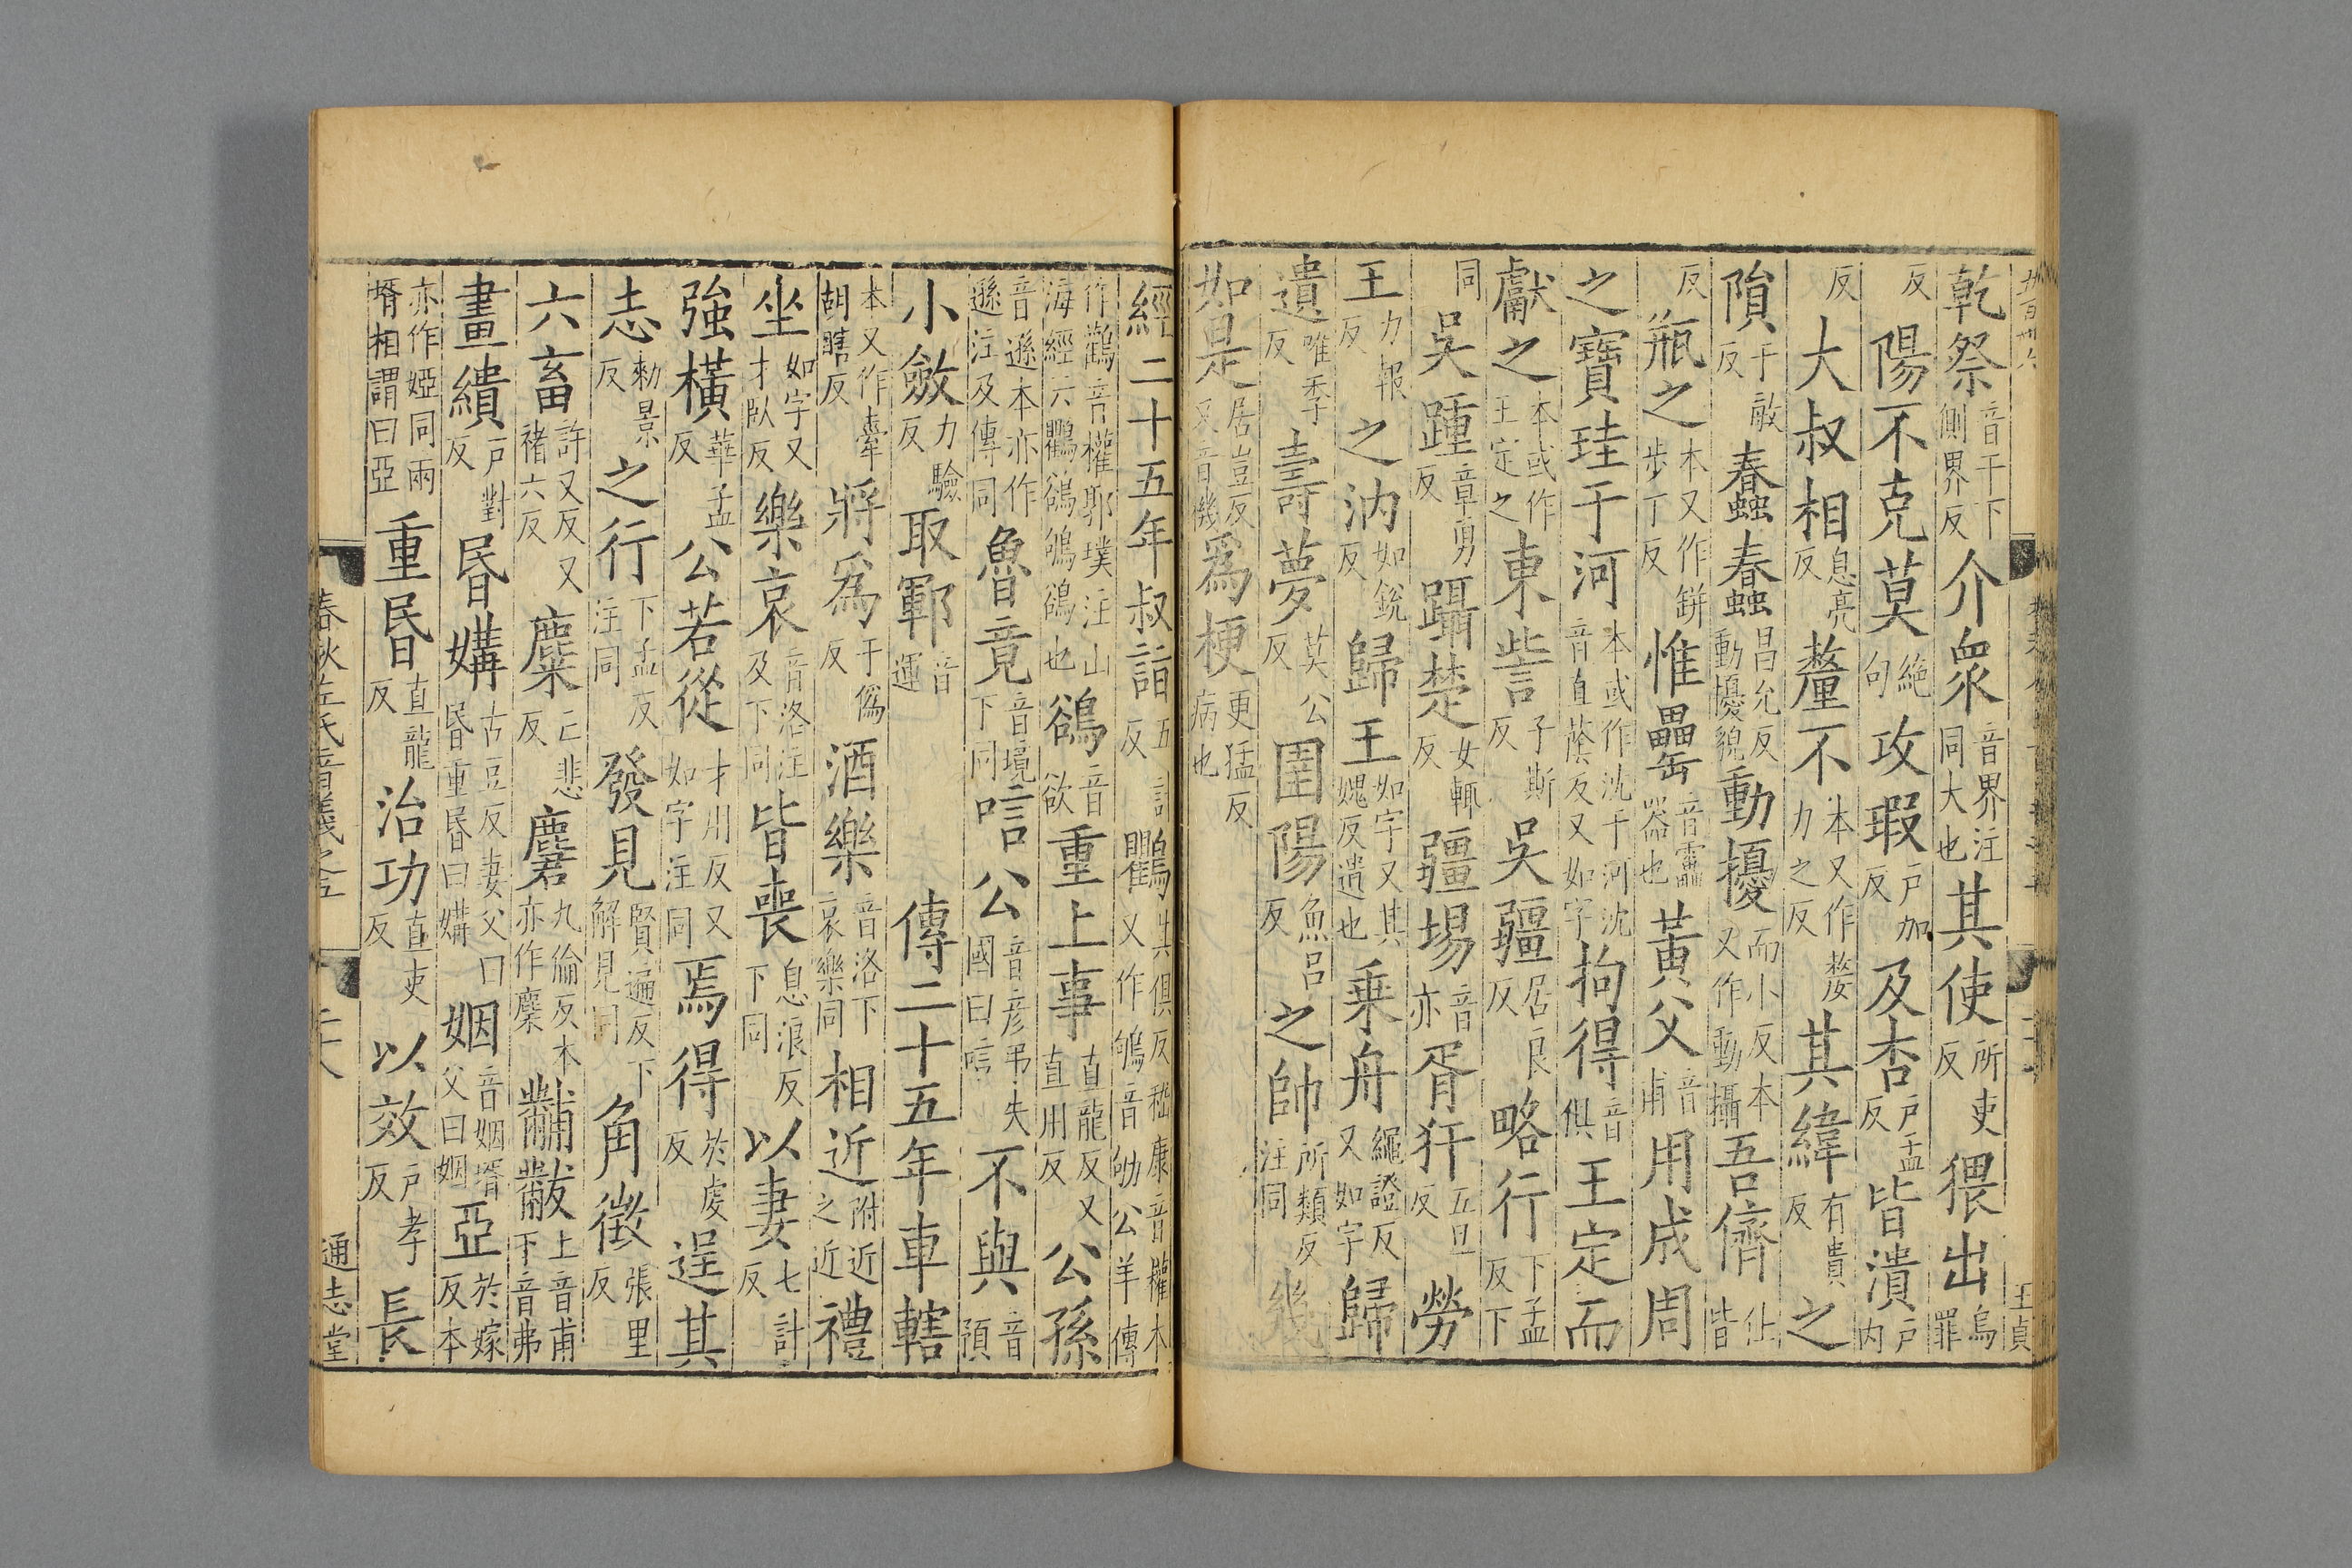 乾祭音干下側界反介衆音界注同大也其使所吏反猥出烏罪
反陽不克莫絶句攻瑕戶加反及杏戶孟反皆潰戶内
反大叔相息亮反釐不本又作嫠力之反其緯有貴反之
隕于敏反蠢蠢昌允反動擾貌動擾而小反本又作動攝吾儕仕皆
反瓶之本又作缾步丁反惟罍音靁器也黃父音甫用成周
之寶珪于河本或作沈于河沈音直蔭反又如字拘得音俱王定而
獻之本或作王定之東訾子斯反吳疆居良反略行下孟反下
同吳踵章勇反躡楚女輒反疆埸音亦胥犴五旦反勞
王力報反之汭如銳反歸王如字又其媿反遺也乗舟繩證反又如字歸
遺唯季反壽夢莫公反圉陽魚呂反之帥所類反注同幾
如是居豈反又音機爲梗更猛反病也
王貞
經二十五年叔詣五計反鸜其俱反嵇康音權本又作鴝音劬公羊傳
作鸛音權郭璞注山海經云鸜鵒鴝鵒也鵒音欲重上事直龍反又直用反公孫
音遜本亦作遜注及傳同魯竟音境下同唁公音彦弔失國曰唁不與音預
小斂力驗反取鄆音運傳二十五年車轄
本又作舝胡瞎反將爲于僞反酒樂音洛下哀樂同相近附近之近禮
坐如字又才臥反樂哀音洛注及下同皆喪息浪反下同以妻七計反
強橫華孟反公若從才用反又如字注同焉得於虔反逞其
志勑景反之行下孟反注同發見賢遍反下解見同角徵張里反
六畜許又反又褚六反麋亡悲反麏九倫反本亦作麇黼黻上音甫下音弗
畫繢戶對反昏媾古豆反妻父曰昏重昏曰媾姻音姻壻父曰姻亞於嫁反本
亦作婭同兩壻相謂曰亞重昏直龍反治功直吏反以效戶孝反長
春秋左氏音義之五
通志堂